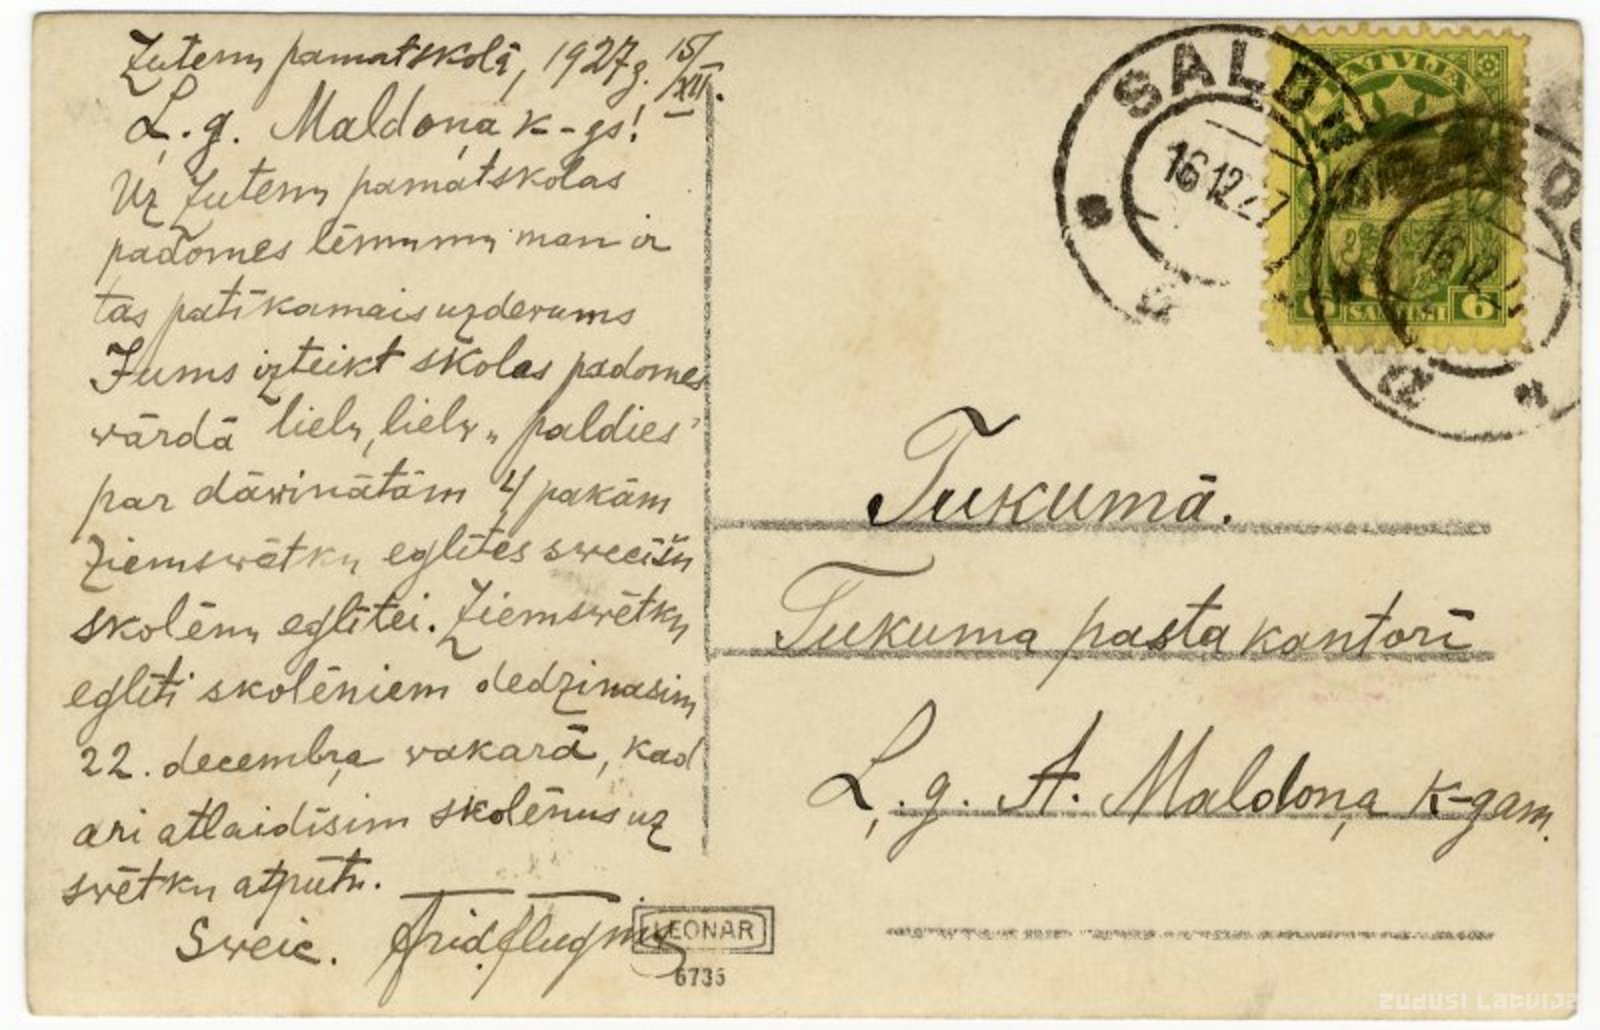 Zuteņu pamatskolā, 1927g. 15/XII.
Ļ. g. Maldoņa k-gs!
Uz Zuteņu pamatskolas
padomes lēmumu man ir
tas patīkamais uzdevums
Jums izteikt skolas padomes
wārdā lielu, lielu „paldies"
par dāwinātām 4 pakām
Ziemswētku eglītes swecīšu
skolēnu eglītei. Ziemswētku
eglīti skolēniem dedzinasim
22. decembŗa wakarā, kad
ari atlaidīsim skolēnus uz
swētku atpūtu.
Sweic.
LEONAR
6735
SALDU
16 12 27
LATVIJA
6 SANTIMI 6
16 12
Tukumā.
Tukuma pasta kantorī
Ļ. g. A. Maldoņa k-gam.
ZUDUSI LATVIJA